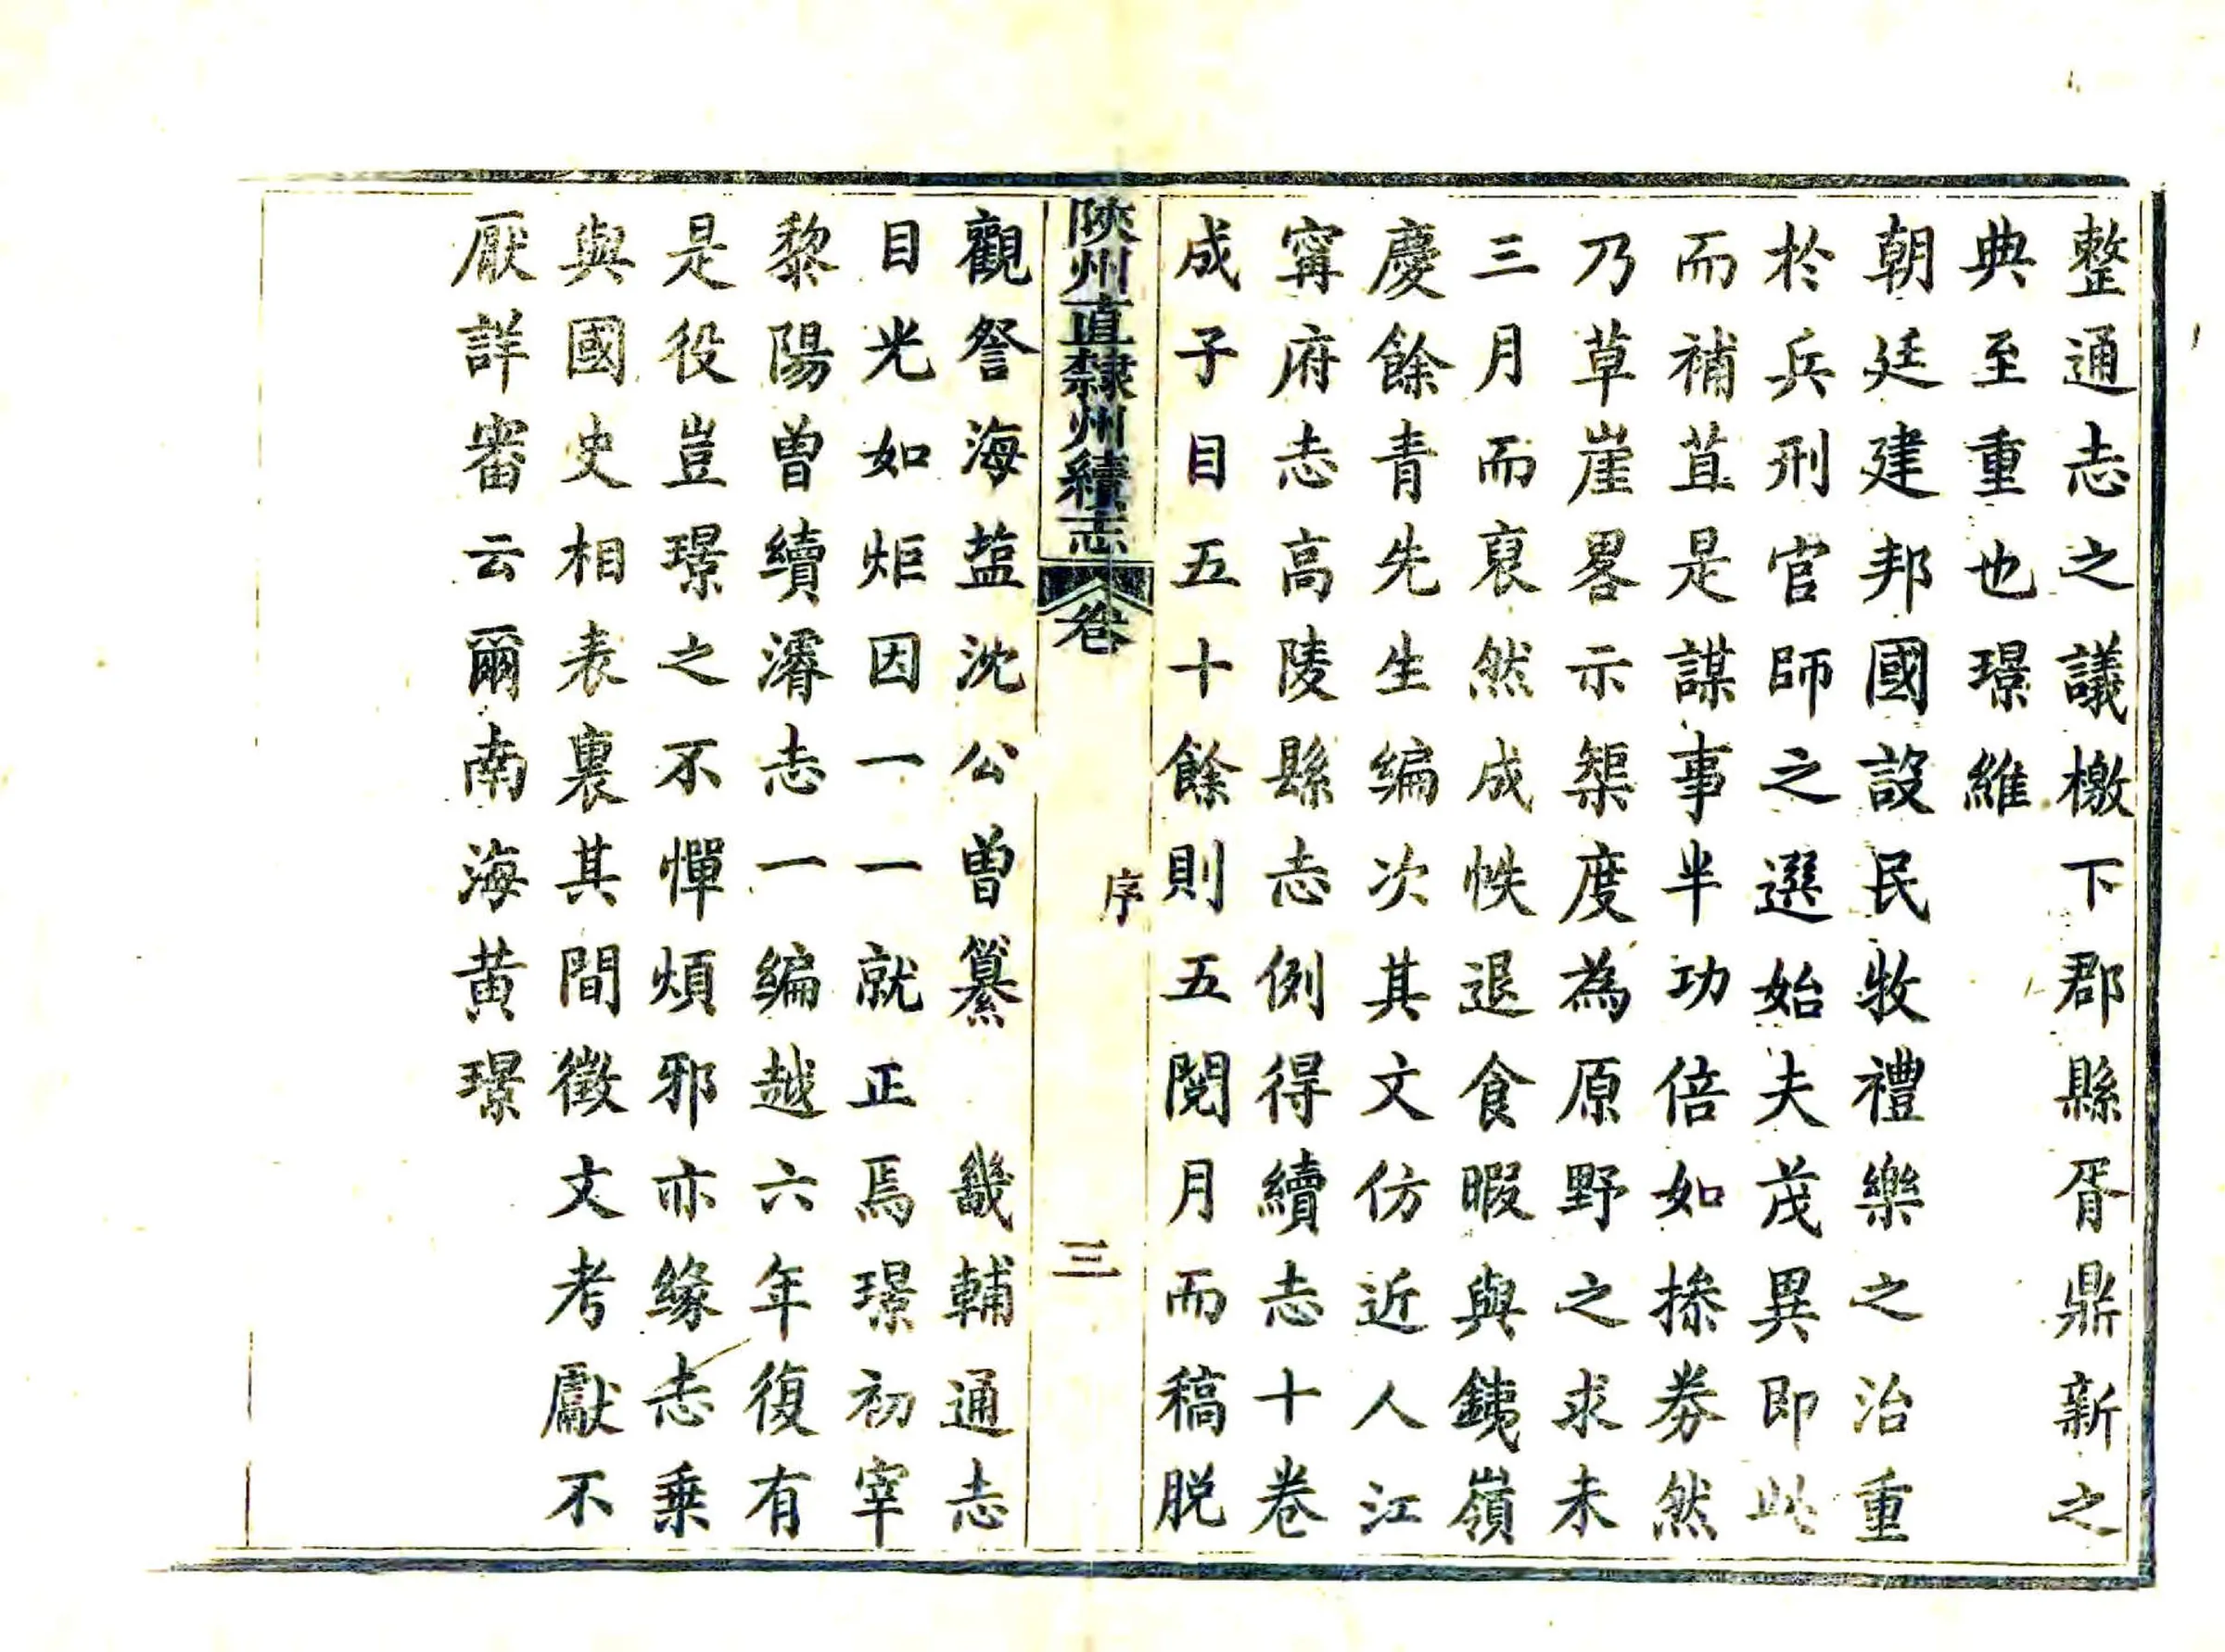 整通志之議檄下郡縣胥鼎新之
典至重也璟維
朝廷建邦國設民牧禮樂之治重
於兵刑官師之選始夫茂異即此
而補苴是謀事半功倍如操劵然
乃草崖畧示榘度為原野之求未
三月而裒然成帙退食暇與銕嶺
慶餘青先生編次其文仿近人江
甯府志高陵縣志例得續志十卷
成子目五十餘則五閱月而稿脱
陝州直隸州續志
卷
序
三
觀詧海鹽沈公曾纂 畿輔通志
目光如炬因一一就正焉璟初宰
黎陽曾續濬志一編越六年復有
是役豈璟之不憚煩邪亦緣志乗
與國史相表裏其間徵文考獻不
厭詳審云爾南海黄璟